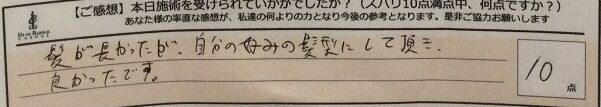 【ご感想】本日施術を受けられていかがでしたか？（ズバリ10点満点中、何点ですか？）
あなた様の率直な感想が、私達の何よりの力となり今後の参考となります。是非ご協力お願いします
髪が長かったが、自分の好みの髪型にして頂き、
良かったです。
10
点